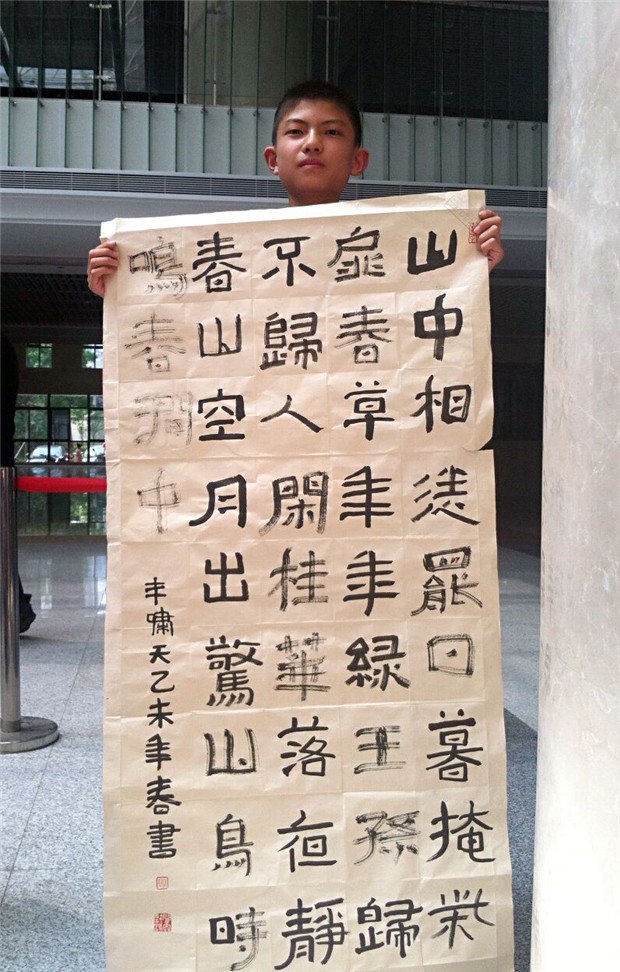 山中相送罷日暮掩柴
扉春草年年緑王孫歸
不歸人閑桂華落夜靜
春山空月出驚山鳥時
鳴春澗中
丰嘯天乙未年春書